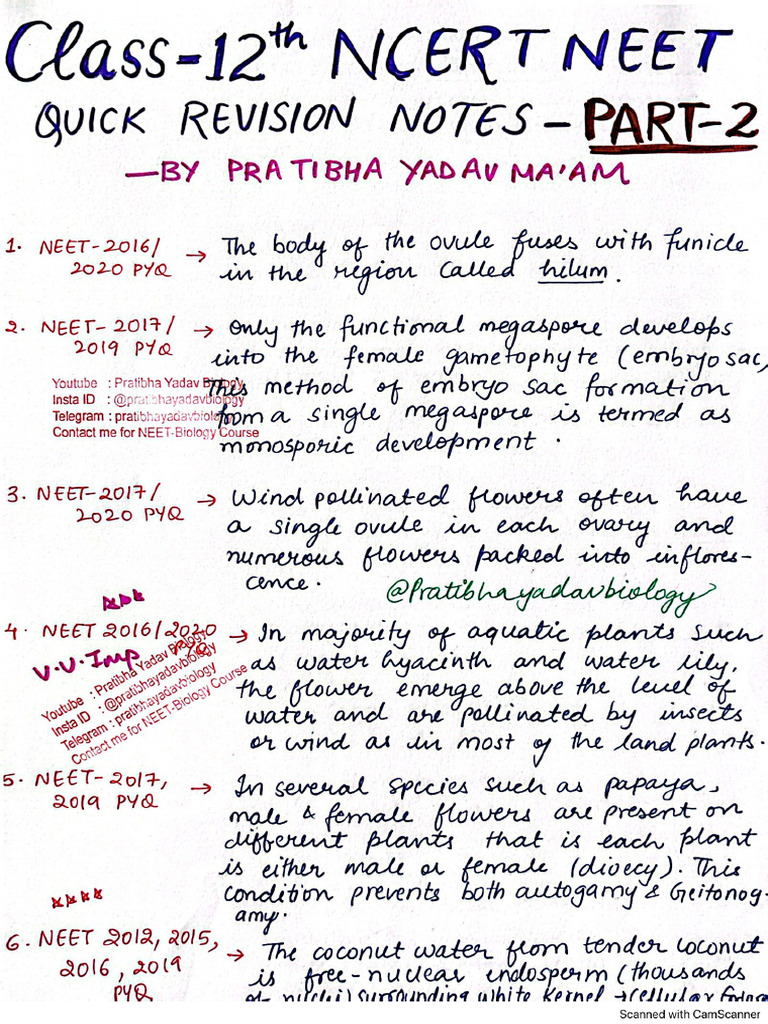 Class-12th NCERT NEET
QUICK REVISION NOTES - PART-2
-BY PRATIBHA YADAV MA'AM
1. NEET-2016/
2020 PYQ
→ The body of the ovule fuses with funicle
in the region called hilum.
2. NEET-2017/
2019 PYQ
→ Only the functional megaspore develops
into the female gametophyte (embryo sac,
This method of embryo sac formation
from a single megaspore is termed as
monosporic development.
Youtube : Pratibha Yadav Biology
Insta ID : @pratibhayadavbiology
Telegram : pratibhayadavbiology
Contact me for NEET-Biology Course
3. NEET-2017/
2020 PYQ
→ Wind pollinated flowers often have
a single ovule in each ovary and
numerous flowers packed into inflores-
cence.
@Pratibhayadavbiology
4. NEET 2016/2020
PYQ
V.V.Imp
→ In majority of aquatic plants such
as water hyacinth and water lily,
the flower emerge above the level of
water and are pollinated by insects
or wind as in most of the land plants.
Youtube : Pratibha Yadav Biology
Insta ID : @pratibhayadavbiology
Telegram : pratibhayadavbiology
Contact me for NEET-Biology Course
5. NEET-2017,
2019 PYQ
→ In several species such as papaya,
male & female flowers are present on
different plants that is each plant
is either male or female (dioecy). This
condition prevents both autogamy & Geitonog-
amy.
6. NEET 2012, 2015,
2016, 2019
PYQ
→ The coconut water from tender coconut
is free-nuclear endosperm (thousands
of nuclei) surrounding white kernel → cellular
Scanned with CamScanner